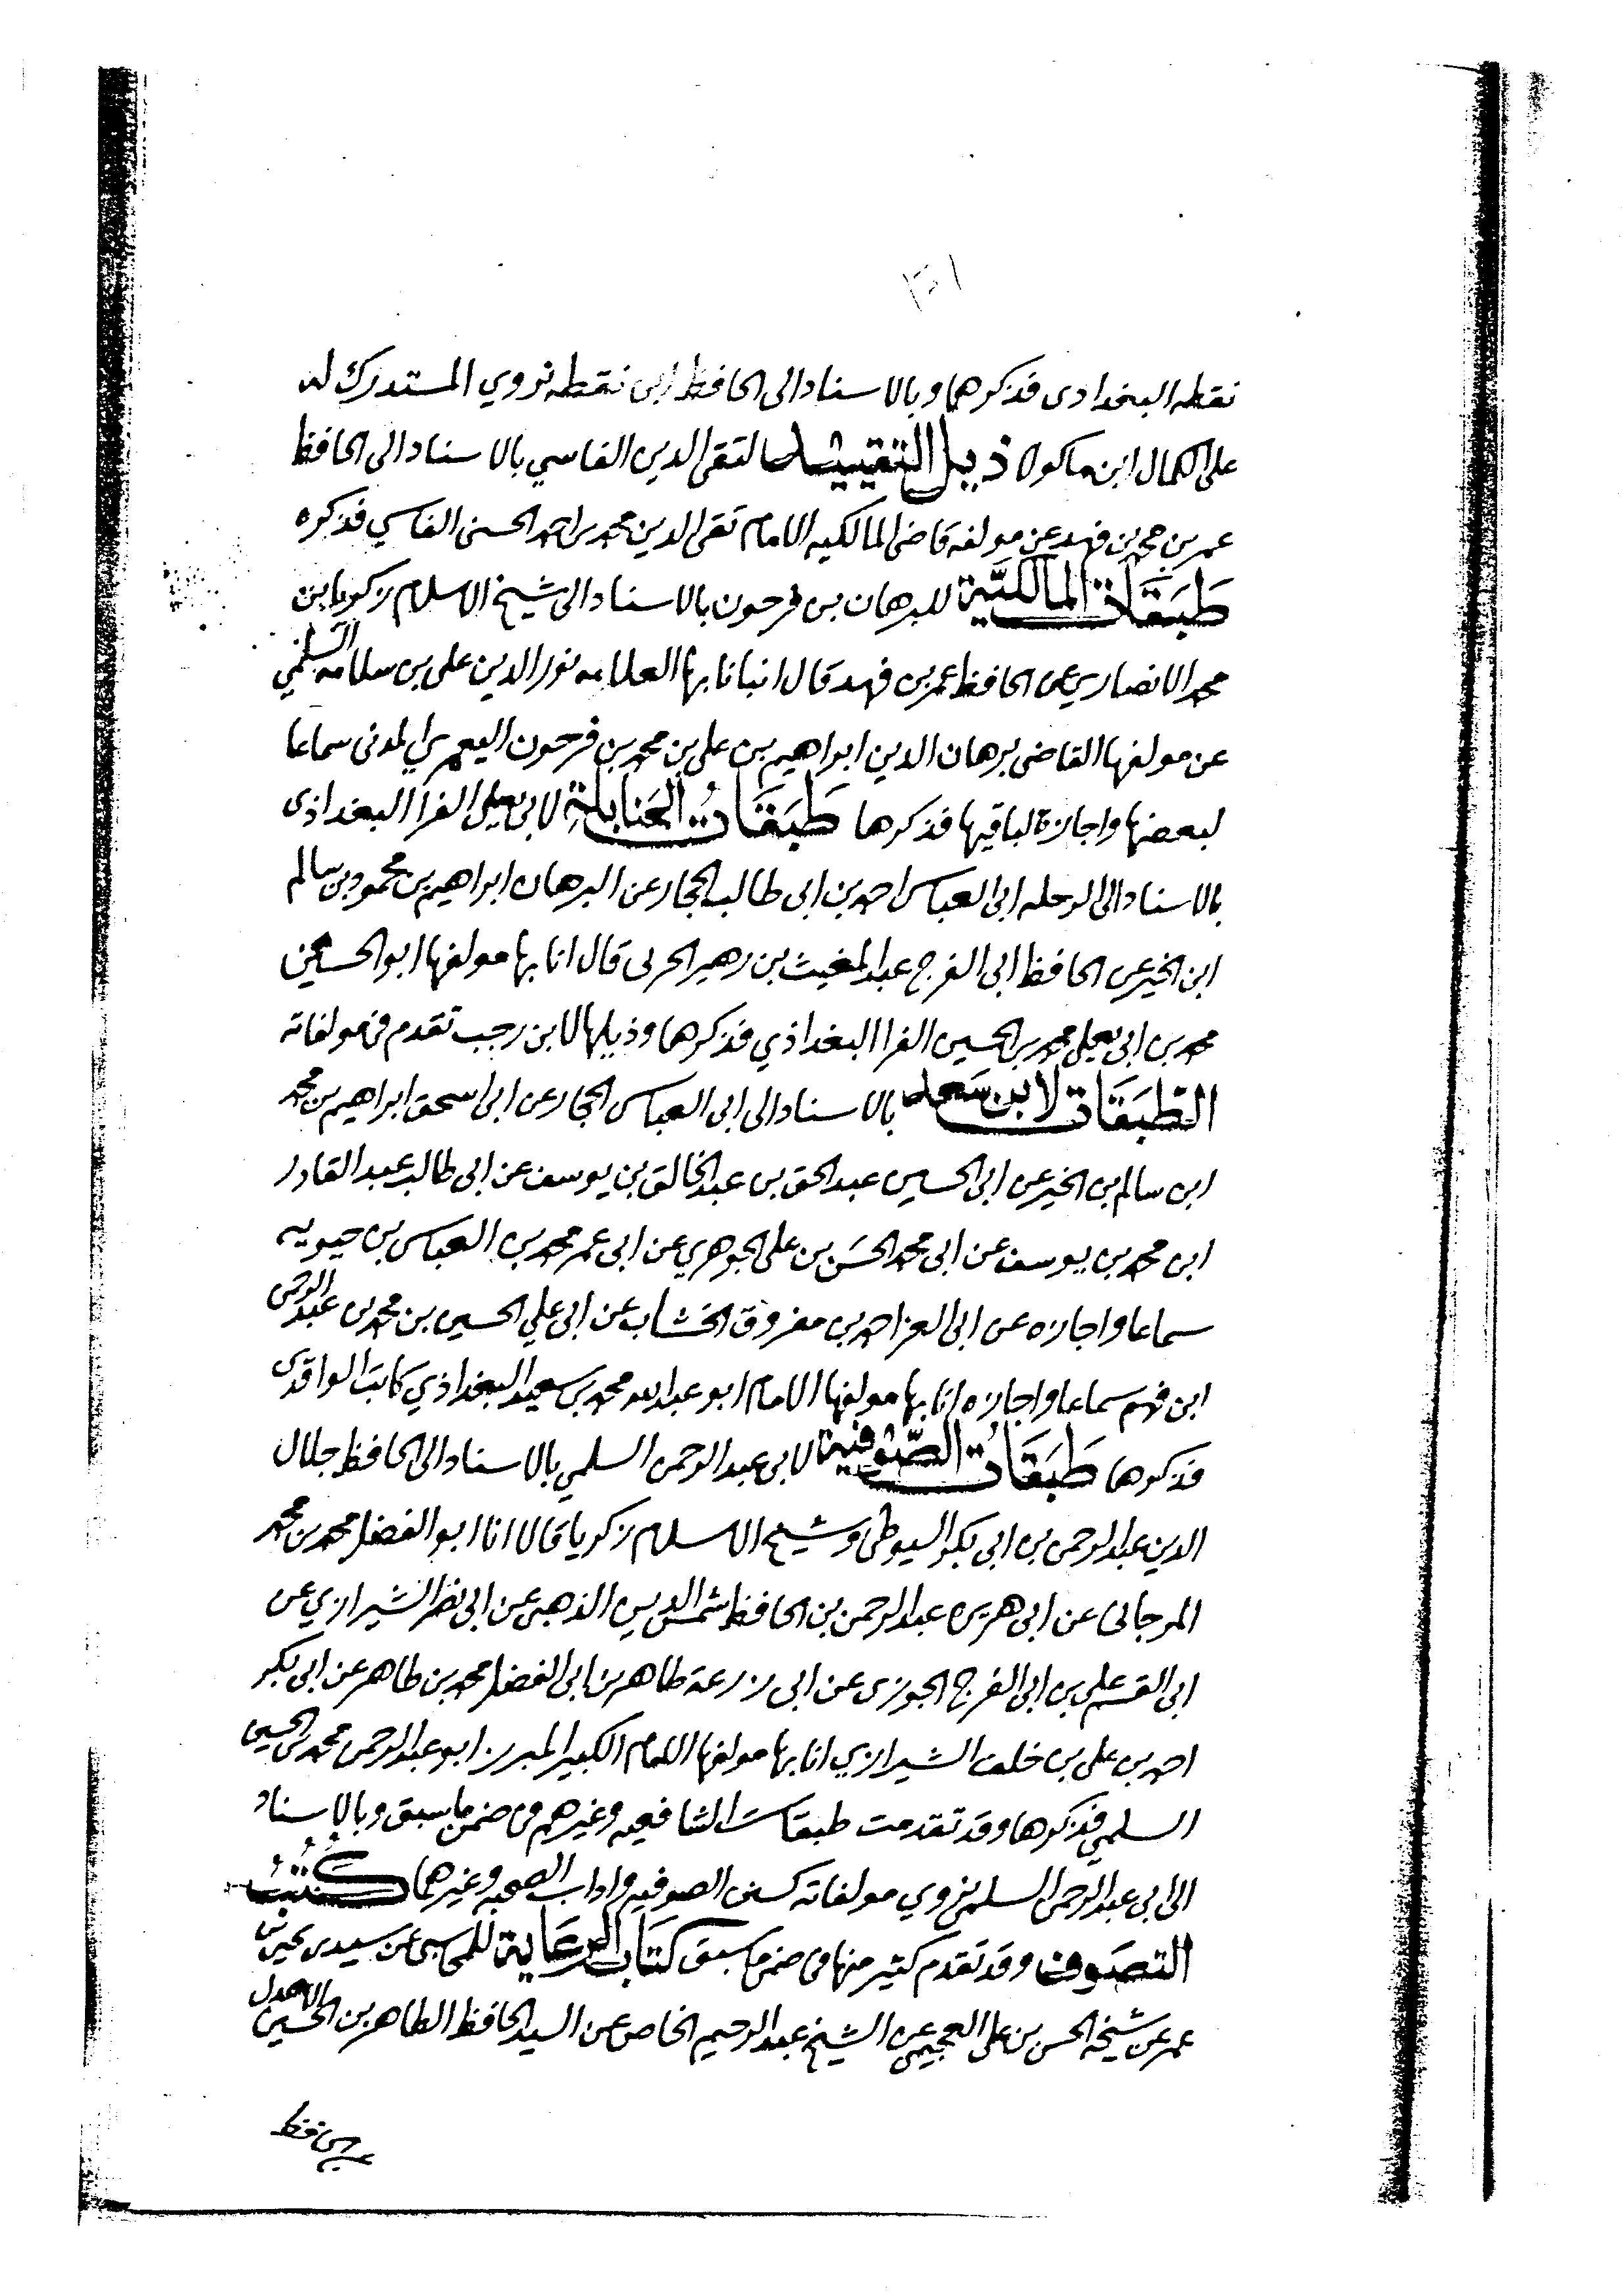 نقطه البغدادى فذكرها وبالاسناد الى الحافظ ابن نقطه نروي المستدرك له
على اكمال ابن ماكولا ذيل التقييد لتقى الدين الفاسي بالاسناد الى الحافظ
عمر بن محمد بن فهد عن مولفه قاضى المالكيه الامام تقى الدين محمد بن احمد الحسنى الفاسي فذكره
طَبَقَات المالكيَّة للبرهان بن فرحون بالاسناد الى شيخ الاسلام زكريا ابن
محمد الانصاري عن الحافظ عمر بن فهد قال انبانا بها العلامه نور الدين على بن سلامه السلمي
عن مولفها القاضى برهان الدين ابراهيم بن على بن محمد بن فرحون اليعمري المدنى سماعا
لبعضها واجازة لباقيها فذكرها طَبَقَاتُ الحَنابلةِ لابى يعلى الفرا البغداذى
بالاسناد الى الرحله ابى العباس احمد بن ابى طالب الحجار عن البرهان ابراهيم بن محمود بن سالم
ابن الخير عن الحافظ ابى الفرج عبد المغيث بن زهير الحربى قال انا بها مولفها ابو الحسين
محمد بن ابى يعلى محمد بن الحسين الفرا البغداذي فذكرها وذيلها لابن رجب تقدم فى مولفاته
الطبَقَات لابن سَعد بالاسناد الى ابى العباس الحجار عن ابى اسحق ابراهيم بن محمد
ابن سالم بن الخير عن ابى الحسين عبد الحق بن عبد الخالق بن يوسف عن ابى طالب عبد القادر
ابن محمد بن يوسف عن ابى محمد الحسَن بن على الجوهري عن ابى عمر محمد بن العباس بن حيويه
سماعا واجازه عن ابى العز احمد بن معروف الخشاب عن ابى علي الحسين بن محمد بن عبد الرحمن
ابن فهم سماعا واجازه انا بها مولفها الامام ابو عبد الله محمد بن سعيد البغداذي كاتب الواقدى
فذكرها طَبَقَاتُ الصُّوفية لابى عبد الرحمن السلمي بالاسناد الى الحافظ جلال
الدين عبد الرحمن بن ابى بكر السيوطى وشيخ الاسلام زكريا قالا انا ابو الفضل محمد بن محمد
المرجانى عن ابى هريره عبد الرحمن بن الحافظ شمس الدين الذهبى عن ابى نصر الشيرازي عن
ابى القسم على بن ابى الفرج الجوزى عن ابى زرعة طاهر بن ابى الفضل محمد بن طاهر عن ابى بكر
احمد بن على بن خلف الشيرازي انا بها مولفها الامام الكبير المبرز ابو عبد الرحمن محمد بن الحسين
السلمي فذكرها وقد تقدمت طبقات الشافعيه وغيرهم فى ضمن ما سبق وبالاسناد
الى ابى عبد الرحمن السلمى نروي مولفاته كسنن الصوفيه واداب الصحبه وغيرهما كُتُبُ
التصَوف وقد تقدم كثير منها فى ضمن ما سبق كتَاب الرعَاية للمحاسبى عن سيدى يحيى بن
عمر عن شيخه الحسن بن على العجيمى عن الشيخ عبد الرحيم الخاص عن السيد الحافظ الطاهر بن الحسين الاهدل